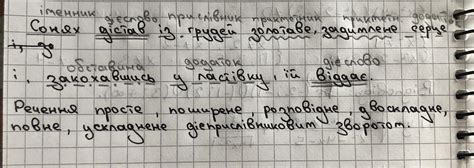 іменник дієслово, прислівник прикметник прикметн додато
Сонях дістав із грудей золотаве, задимлене серце
і, за
обставина додаток дієслово
і, закохавшись у ластівку, їй віддає.
Речення просте, поширене, розповідне, двоскладне,
повне, ускладнене дієприслівниковим зворотом.